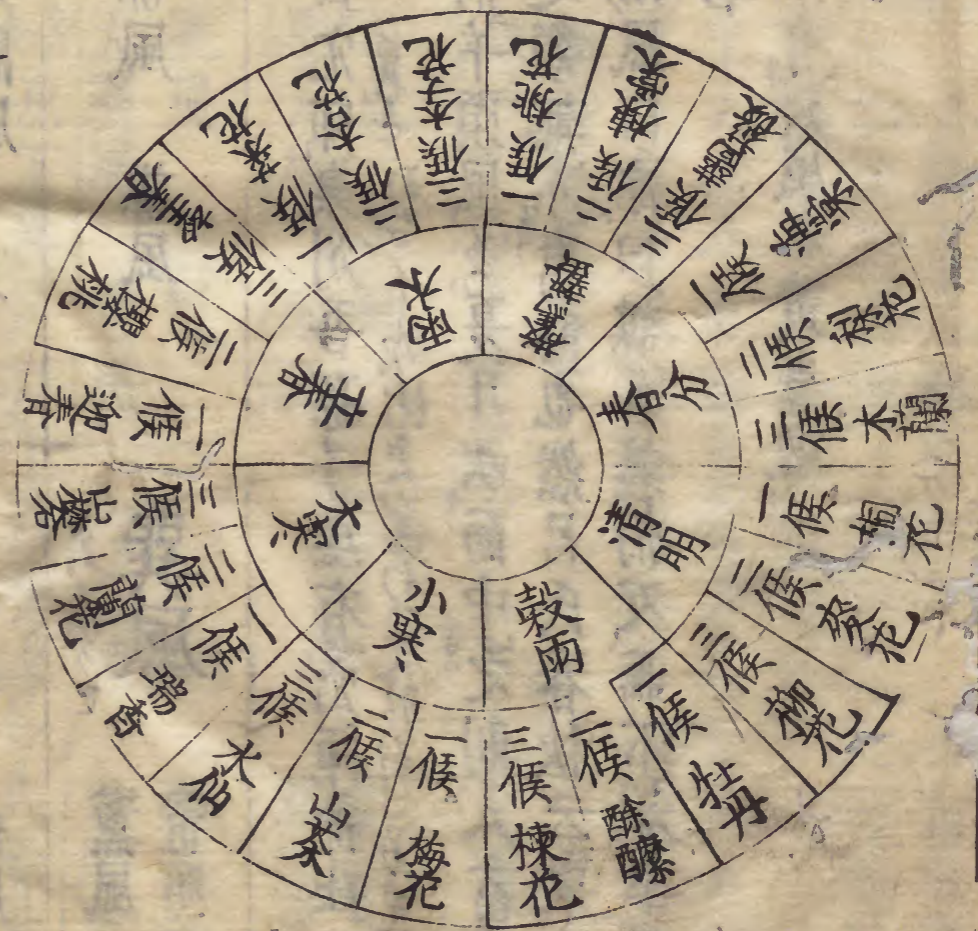 小寒
一候 梅花
二候 山茶
三候 水仙
大寒
一候 瑞香
二候 蘭花
三候 山礬
立春
一候 迎春
二候 櫻桃
三候 望春
雨水
一候 菜花
二候 杏花
三候 李花
驚蟄
一候 桃花
二候 棣棠
三候 薔薇
春分
一候 海棠
二候 梨花
三候 木蘭
清明
一候 桐花
二候 麥花
三候 柳花
穀雨
一候 牡丹
二候 酴醾
三候 楝花